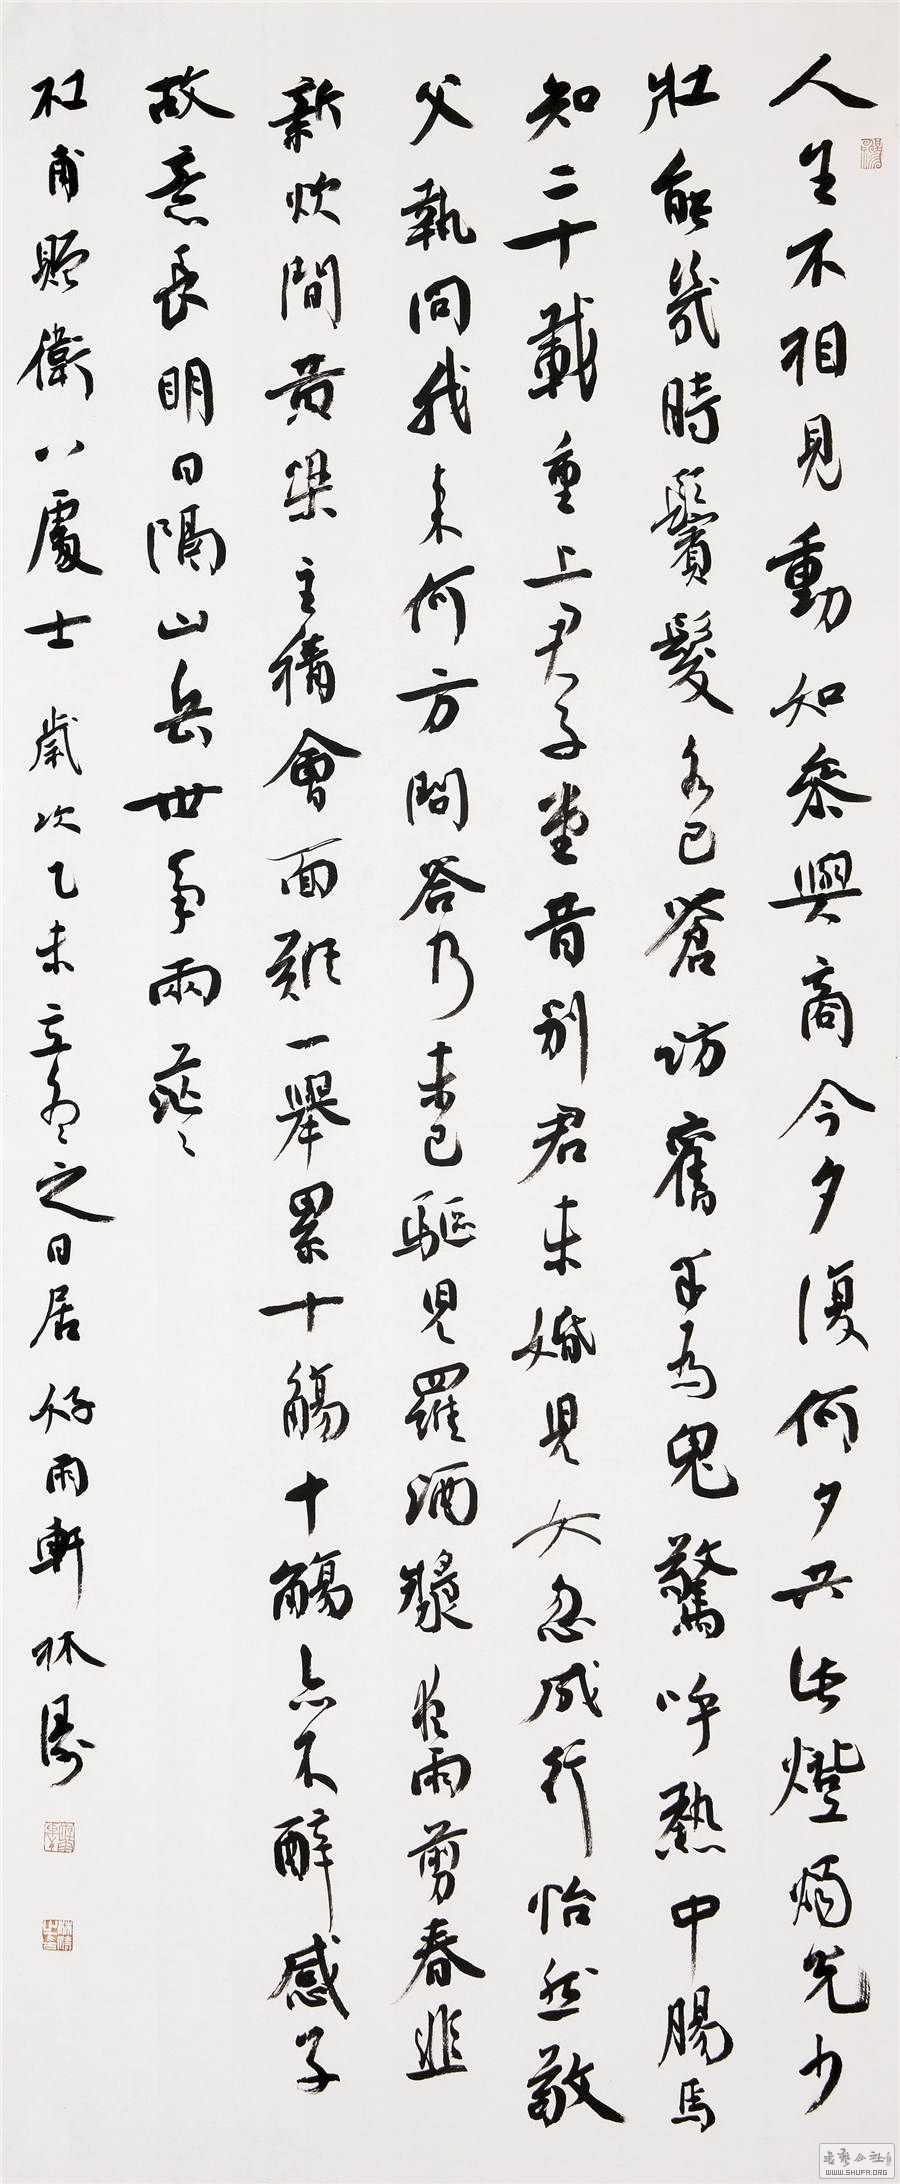 人生不相見動如參與商今夕復何夕共此燈燭光少
壯能幾時鬢髮各已蒼訪舊半為鬼驚呼熱中腸焉
知二十載重上君子堂昔別君未婚兒女忽成行怡然敬
父執問我來何方問答乃未已驅兒羅酒漿夜雨剪春韭
新炊間黃粱主稱會面難一舉累十觴十觴亦不醉感子
故意長明日隔山岳世事兩茫〻
杜甫贈衛八處士 歲次乙未立冬之日居好雨軒林
WWW.SHUFA.ORG